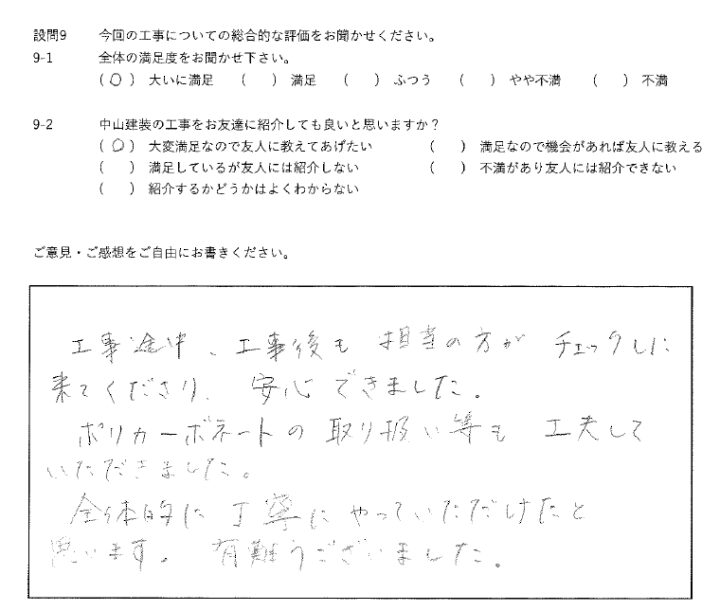 設問9 今回の工事についての総合的な評価をお聞かせください。
9-1 全体の満足度をお聞かせ下さい。
(○) 大いに満足 ( ) 満足 ( ) ふつう ( ) やや不満 ( ) 不満
9-2 中山建装の工事をお友達に紹介しても良いと思いますか？
(○) 大変満足なので友人に教えてあげたい ( ) 満足なので機会があれば友人に教える
( ) 満足しているが友人には紹介しない ( ) 不満があり友人には紹介できない
( ) 紹介するかどうかはよくわからない
ご意見・ご感想をご自由にお書きください。
工事途中、工事後も 担当の方が チェックしに
来てくださり、安心できました。
ポリカーボネートの取り扱い等も 工夫して
いただきました。
全体的に丁寧にやっていただけたと
思います。有難うございました。